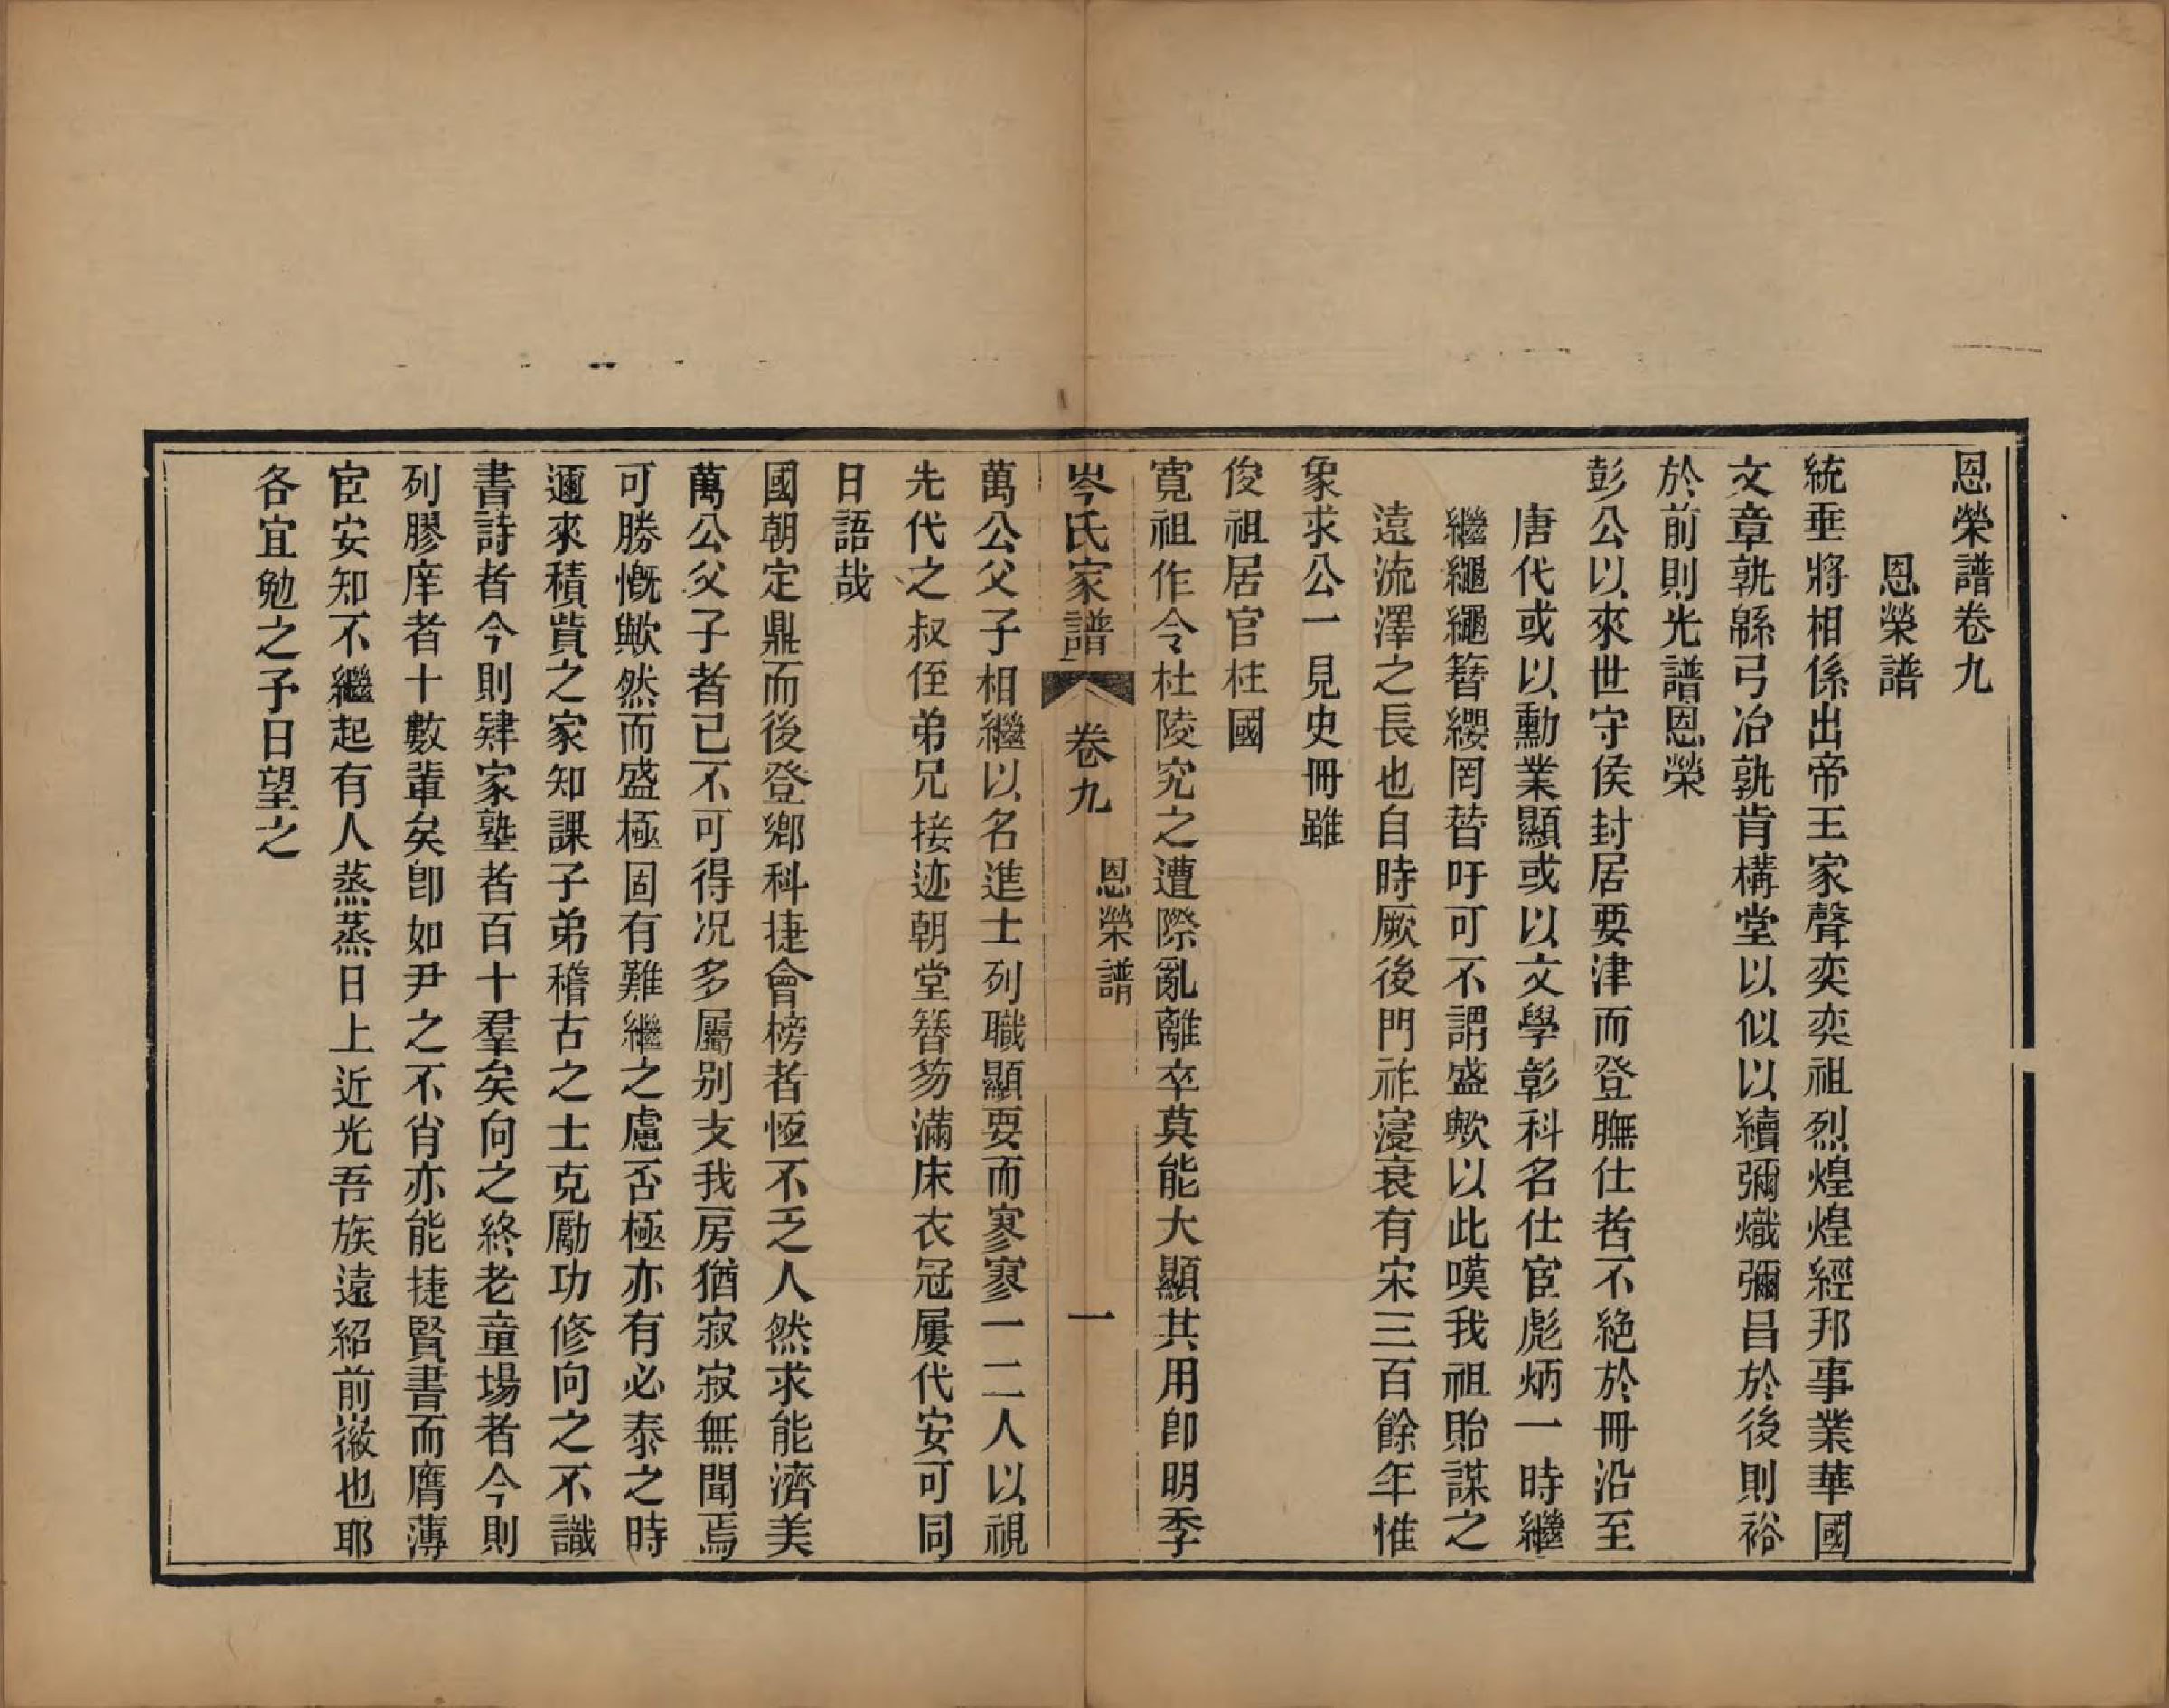 恩榮譜卷九
恩榮譜
統垂將相係出帝王家聲奕奕祖烈煌煌經邦事業華國
文章孰緜弓冶孰肯構堂以似以續彌熾彌昌於後則裕
於前則光譜恩榮
彭公以來世守侯封居要津而登膴仕者不絕於冊沿至
唐代或以勳業顯或以文學彰科名仕宦彪炳一時繼
繼繩繩簪纓罔替吁可不謂盛歟以此嘆我祖貽謀之
遠流澤之長也自時厥後門祚寖衰有宋三百餘年惟
象求公一見史冊雖
俊祖居官柱國
寬祖作令杜陵究之遭際亂離卒莫能大顯其用卽明季
岑氏家譜 卷九 恩榮譜 一
萬公父子相繼以名進士列職顯要而寥寥一二人以視
先代之叔侄弟兄接迹朝堂簪笏滿床衣冠屢代安可同
日語哉
國朝定鼎而後登鄉科捷會榜者恆不乏人然求能濟美
萬公父子者已不可得况多屬別支我房猶寂寂無聞焉
可勝慨歟然而盛極固有難繼之慮否極亦有必泰之時
邇來積貲之家知課子弟稽古之士克勵功修向之不識
書詩者今則肄家塾者百十羣矣向之終老童場者今則
列膠庠者十數輩矣卽如尹之不肖亦能捷賢書而膺薄
宦安知不繼起有人蒸蒸日上近光吾族遠紹前徽也耶
各宜勉之予日望之